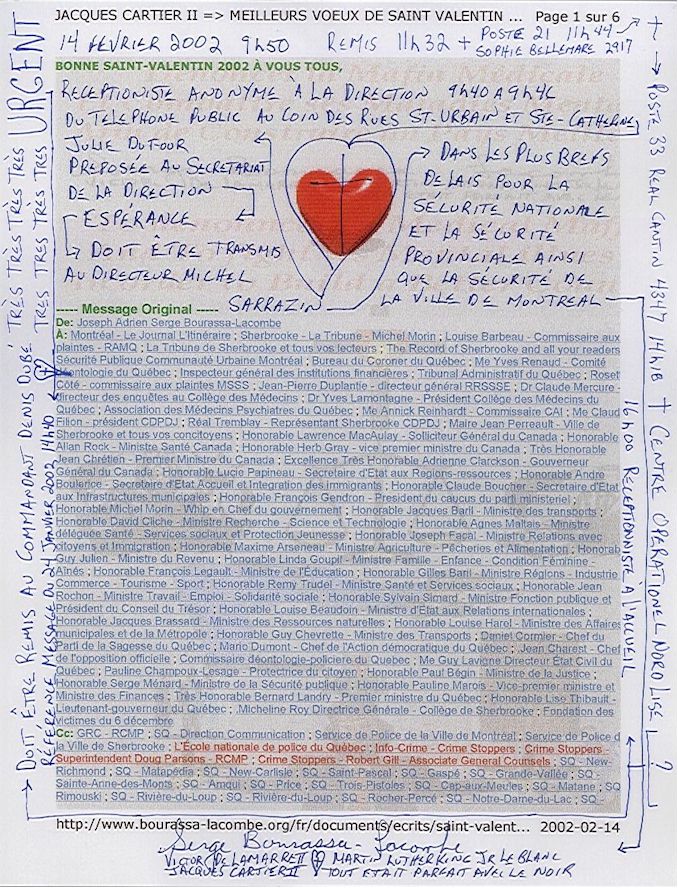 JACQUES CARTIER II => MEILLEURS VOEUX DE SAINT VALENTIN ... Page 1 sur 6
14 FÉVRIER 2002 9H50 REMIS 11H32 + POSTE 21 11H44
SOPHIE BELLEMARE 2917
BONNE SAINT-VALENTIN 2002 À VOUS TOUS,
RECEPTIONISTE ANONYME À LA DIRECTION 9H40 A 9H46
DU TELEPHONE PUBLIC AU COIN DES RUES ST-URBAIN ET STE-CATHERINE
JULIE DUFOUR
PREPOSÉE AU SECRETARIAT
DE LA DIRECTION
ESPÉRANCE
DOIT ÊTRE TRANSMIS
AU DIRECTEUR MICHEL
SARRAZIN
DANS LES PLUS BREFS
DELAIS POUR LA
SÉCURITÉ NATIONALE
ET LA SÉCURITÉ
PROVINCIALE AINSI
QUE LA SÉCURITÉ DE
LA VILLE DE MONTREAL
----- Message Original -----
De: Joseph Adrien Serge Bourassa-Lacombe
À: Montréal - Le Journal L'Itinéraire ; Sherbrooke - La Tribune - Michel Morin ; Louise Barbeau - Commissaire aux
plaintes - RAMQ ; La Tribune de Sherbrooke et tous vos lecteurs ; The Record of Sherbrooke and all your readers
Sécurité Publique Communauté Urbaine Montréal ; Bureau du Coroner du Québec ; Me Yves Renaud - Comité
déontologie du Québec ; Inspecteur général des institutions financières ; Tribunal Administratif du Québec ; Roset
Côté - commissaire aux plaintes MSSS ; Jean-Pierre Duplantie - directeur général RRSSSE ; Dr Claude Mercure -
directeur des enquêtes au Collège des Médecins ; Dr Yves Lamontagne - Président Collège des Médecins du
Québec ; Association des Médecins Psychiatres du Québec ; Me Annick Reinhardt - Commissaire CAI ; Me Claud
Filion - président CDPDJ ; Réal Tremblay - Représentant Sherbrooke CDPDJ ; Maire Jean Perreault - Ville de
Sherbrooke et tous vos concitoyens ; Honorable Lawrence MacAulay - Solliciteur Général du Canada ; Honorable
Allan Rock - Ministre Santé Canada ; Honorable Herb Gray - vice premier ministre du Canada ; Très Honorable
Jean Chrétien - Premier Ministre du Canada ; Excellence Très Honorable Adrienne Clarckson - Gouverneur
Général du Canada ; Honorable Lucie Papineau - Secretaire d'Etat aux Regions-ressources ; Honorable Andre
Boulerice - Secretaire d'Etat Accueil et Integration des immigrants ; Honorable Claude Boucher - Secretaire d'Etat
aux Infrastructures municipales ; Honorable François Gendron - President du caucus du parti ministeriel ;
Honorable Michel Morin - Whip en Chef du gouvernement ; Honorable Jacques Baril - Ministre des transports ;
Honorable David Cliche - Ministre Recherche - Science et Technologie ; Honorable Agnes Maltais - Ministre
déléguée Santé - Services sociaux et Protection Jeunesse ; Honorable Joseph Facal - Ministre Relations avec
citoyens et Immigration ; Honorable Maxime Arseneau - Ministre Agriculture - Pêcheries et Alimentation ; Honorab
Guy Julien - Ministre du Revenu ; Honorable Linda Goupil - Ministre Famille - Enfance - Condition Féminine -
Aînés ; Honorable François Legault - Ministre de l'Éducation ; Honorable Gilles Baril - Ministre Régions - Industrie
Commerce - Tourisme - Sport ; Honorable Remy Trudel - Ministre Santé et Services sociaux ; Honorable Jean
Rochon - Ministre Travail - Emploi - Solidarité sociale ; Honorable Sylvain Simard - Ministre Fonction publique et
Président du Conseil du Trésor ; Honorable Louise Beaudoin - Ministre d'Etat aux Relations internationales ;
Honorable Jacques Brassard - Ministre des Ressources naturelles ; Honorable Louise Harel - Ministre des Affaires
municipales et de la Métropole ; Honorable Guy Chevrette - Ministre des Transports ; Daniel Cormier - Chef du
Parti de la Sagesse du Québec ; Mario Dumont - Chef de l'Action démocratique du Québec ; Jean Charest - Chef
de l'opposition officielle ; Commissaire déontologie-policiere du Quebec ; Me Guy Lavigne Directeur État Civil du
Québec ; Pauline Champoux-Lesage - Protectrice du citoyen ; Honorable Paul Bégin - Ministre de la Justice ;
Honorable Serge Ménard - Ministre de la Sécurité publique ; Honorable Pauline Marois - Vice-premier ministre et
Ministre des Finances ; Très Honorable Bernard Landry - Premier ministre du Québec ; Honorable Lise Thibault -
Lieutenant-gouverneur du Québec ; .Micheline Roy Directrice Générale - Collège de Sherbrooke ; Fondation des
victimes du 6 décembre
Cc: GRC - RCMP ; SQ - Direction Communication ; Service de Police de la Ville de Montréal ; Service de Police d
la Ville de Sherbrooke ; L'École nationale de police du Québec ; Info-Crime - Crime Stoppers ; Crime Stoppers -
Superintendent Doug Parsons - RCMP ; Crime Stoppers - Robert Gill - Associate General Counsels ; SQ - New-
Richmond ; SQ - Matapédia ; SQ - New-Carlisle ; SQ - Saint-Pascal ; SQ - Gaspé ; SQ - Grande-Vallée ; SQ -
Sainte-Anne-des-Monts ; SQ - Amqui ; SQ - Price ; SQ - Trois-Pistoles ; SQ - Cap-aux-Meules ; SQ - Matane ; SQ
Rimouski ; SQ - Rivière-du-Loup ; SQ - Rivière-du-Loup ; SQ - Rocher-Percé ; SQ - Notre-Dame-du-Lac ; SQ -
http://www.bourassa-lacombe.org/fr/documents/ecrits/saint-valent... 2002-02-14
Serge Bourassa-Lacombe
VICTOR DELAMARRE II MARTIN LUTHER KING JR LE BLANC
JACQUES CARTIER II TOUT ETAIT PARFAIT AVEC LE NOIR
DOIT ÊTRE REMIS AU COMMANDANT DENIS DUBÉ TRÈS TRÈS TRÈS TRÈS
RÉFÉRENCE MESSAGE DU 24 JANVIER 2002 14H40 TRES TRES TRES TRES URGENT
POSTE 33 REAL CANTIN 4347 14H18 + CENTRE OPERATIONEL NORD LISE ?
16H00 RECEPTIONISTE À L'ACCUEIL